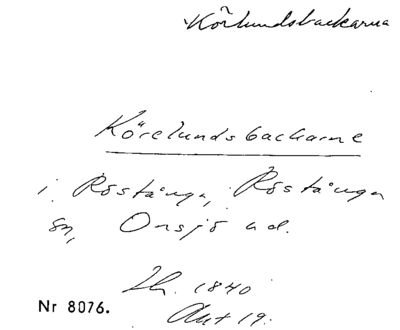 Körlundsbackarna
Körelundsbackarne
i Röstånga, Röstånga
sn, Onsjö hd.
Lh. 1840
Akt 19.
Nr 8076.